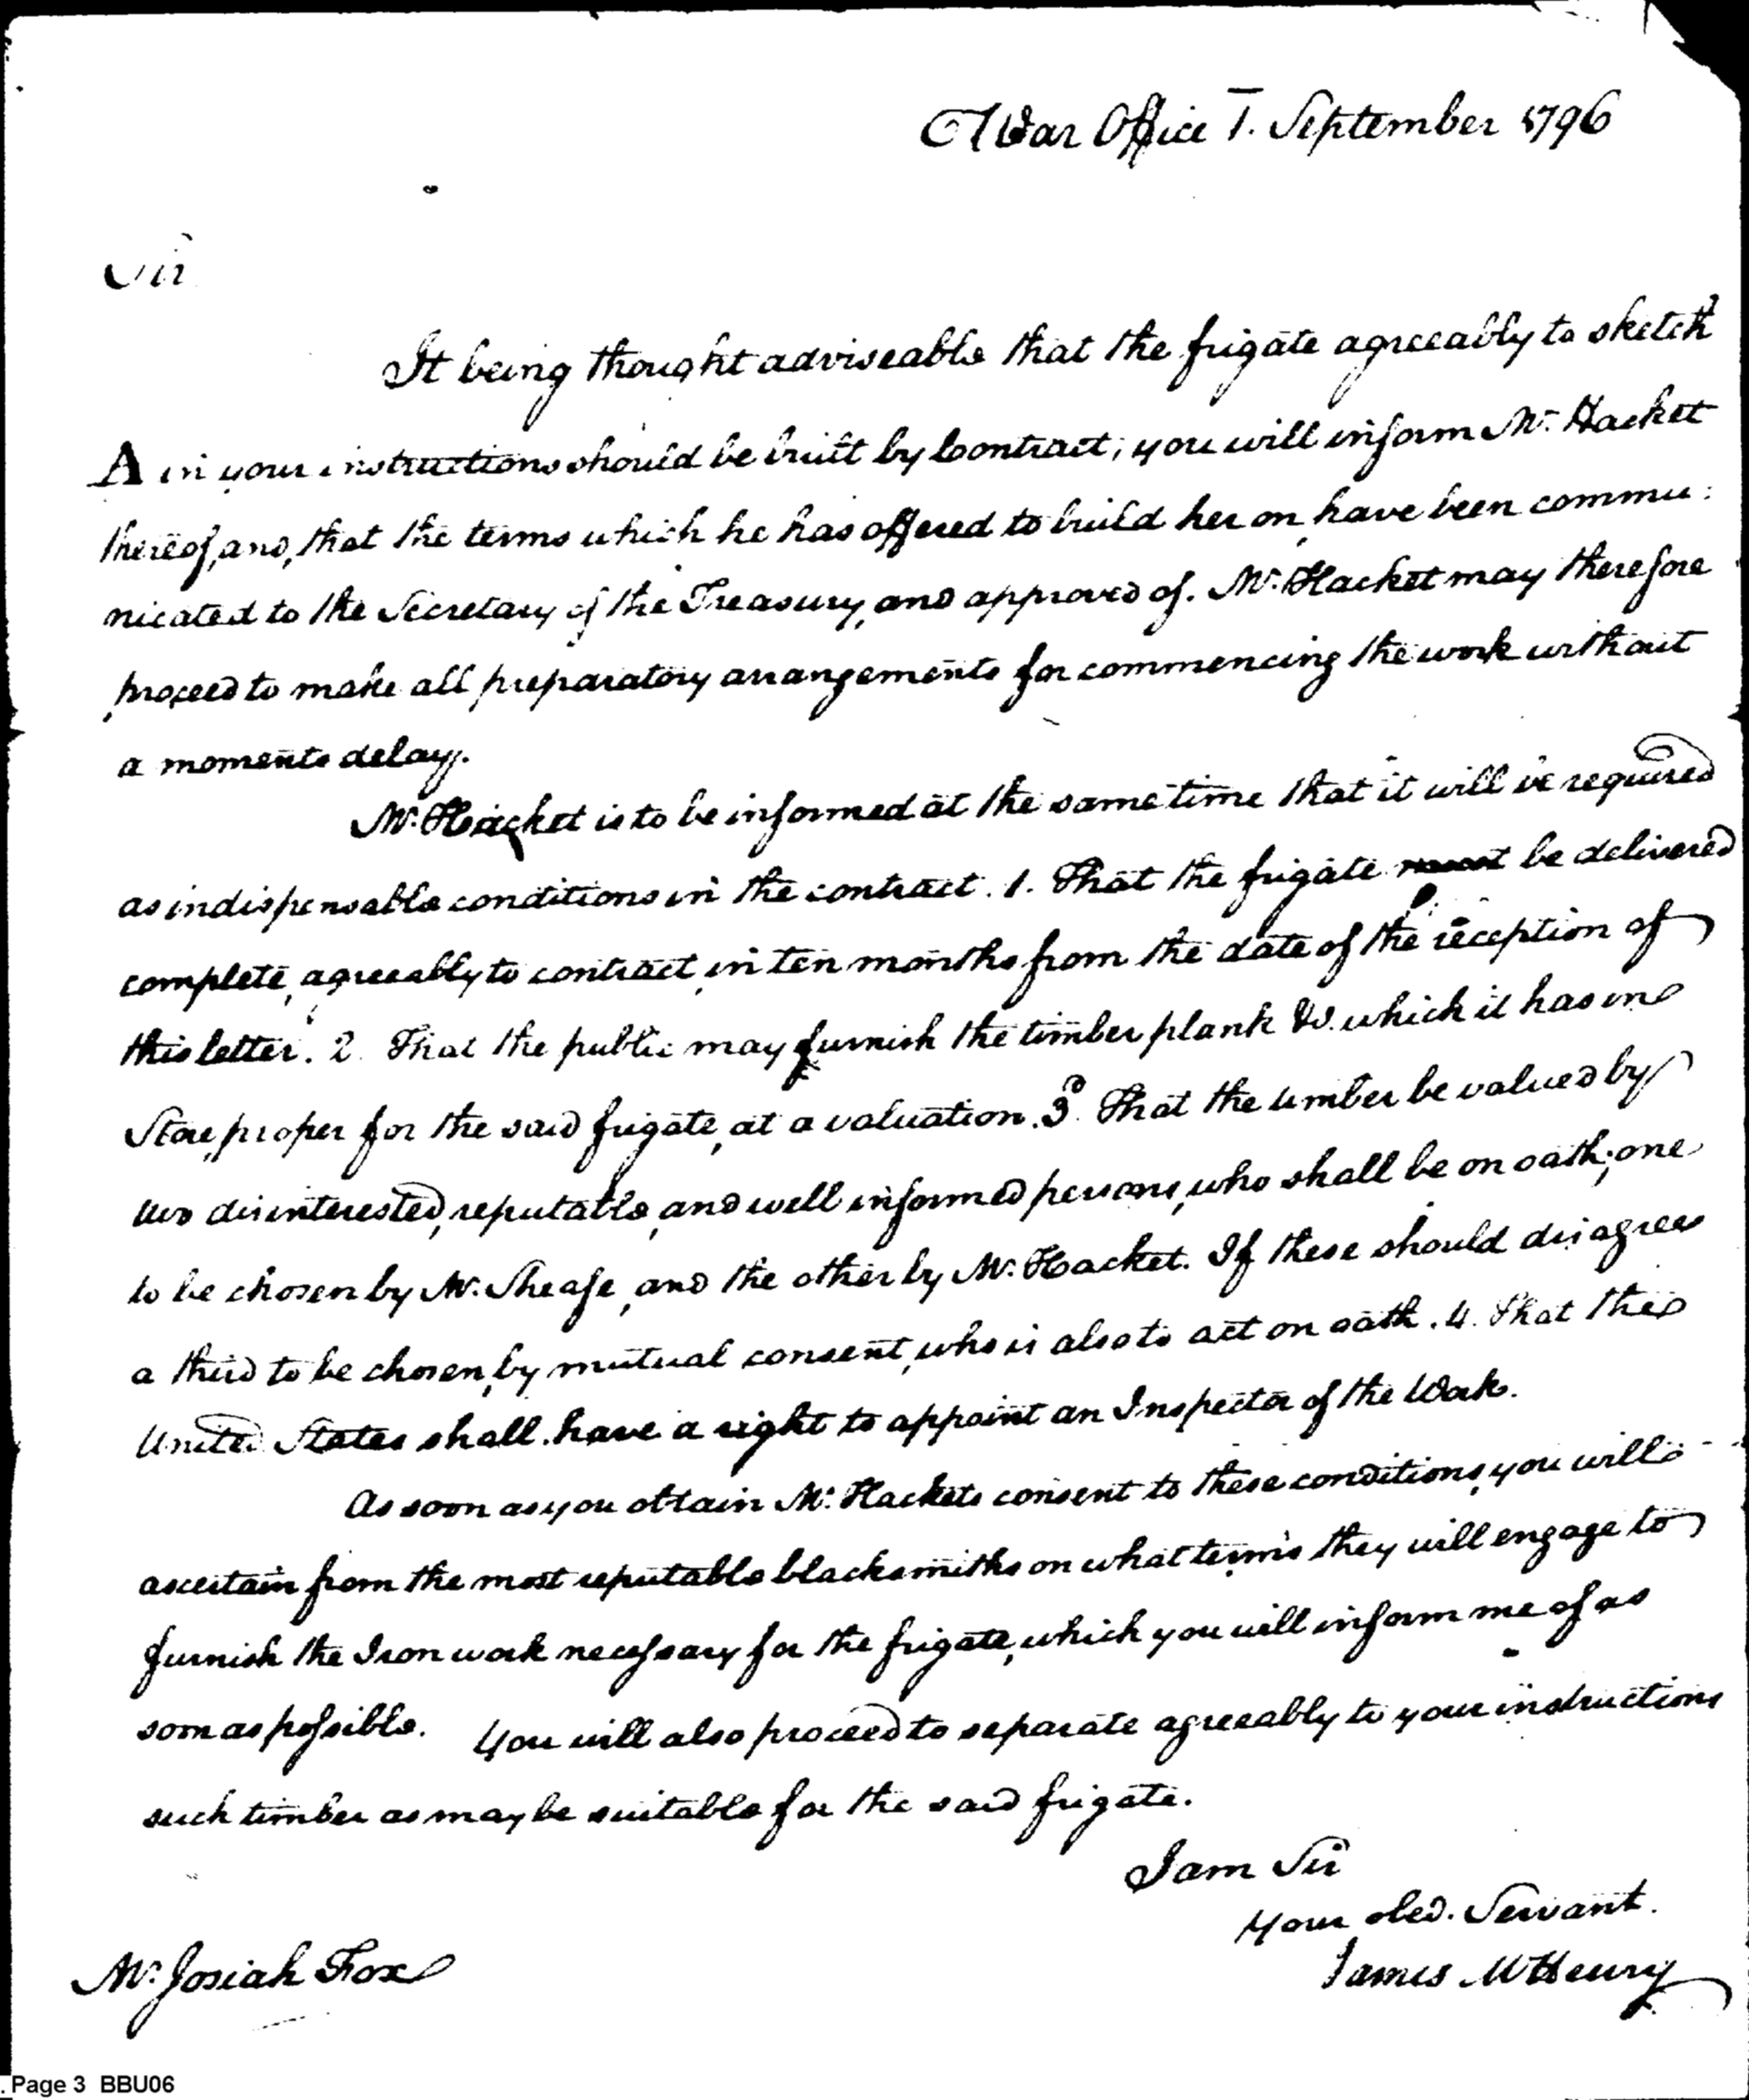 War Office 1. September 1796
Sir
It being thought adviseable that the frigate agreeably to sketch
A in your instructions should be built by Contract; you will inform Mr. Hacket
thereof, and, that the terms which he has offered to build her on, have been commu:
nicated to the Secretary of the Treasury, and approved of. Mr. Hacket may therefore
proceed to make all preparatory arrangements for commencing the work without
a moments delay.
Mr. Hacket is to be informed at the same time that it will be required
as indispensable conditions in the contract. 1. That the frigate be delivered
complete, agreeably to contract, in ten months from the date of the reception of
this letter. 2. That the public may furnish the timber plank &c. which it has in
Store, proper for the said frigate, at a valuation. 3d. That the timber be valued by
two disinterested, reputable, and well informed persons, who shall be on oath; one
to be chosen by Mr. Sheafe, and the other by Mr. Hacket. If these should disagree
a third to be chosen, by mutual consent, who is also to act on oath. 4. That the
United States shall have a right to appoint an Inspector of the Work.
As soon as you obtain Mr. Hackets consent to these conditions, you will
ascertain from the most reputable blacksmiths on what terms they will engage to
furnish the Iron work necessary for the frigate, which you will inform me of as
soon as possible. You will also proceed to separate agreeably to your instructions
such timber as may be suitable for the said frigate.
I am Sir
Your obed. Servant.
James McHenry
Mr. Josiah Fox
Page 3 BBU06